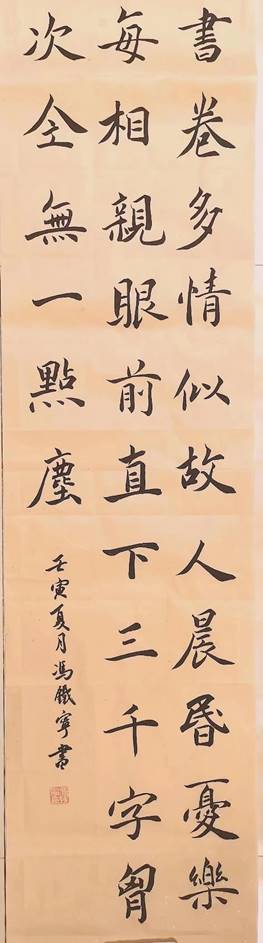 書卷多情似故人晨昬憂樂
每相親眼前直下三千字胷
次全無一點塵
壬寅夏月馮鐵寧書